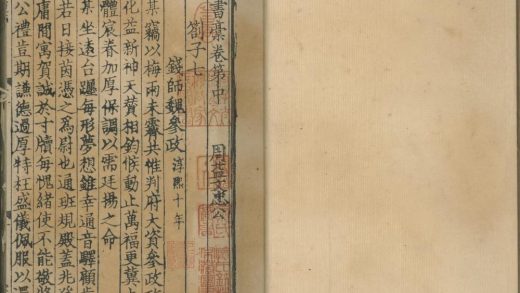 書藁卷第中
周益文忠公
劄子七
錢師魏參政 淳熙十年
某竊以梅雨未霽共惟判府大資參政
化益新神天贊相鈞候動止萬福更冀
體宸眷加厚保調以需廷揚之命
某坐遠台躔每形夢想雖幸通音驛顧
若日接茵憑之為慰也通班規殿蓋兆
庸聞寓賀誠於寸牘每愧緒使不能敬
公禮豈期謙德過厚特枉盛儀佩服以